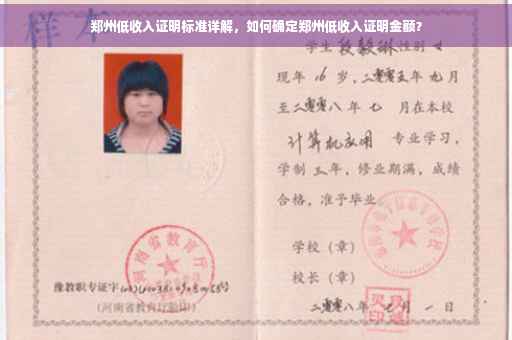 郑州低收入证明标准详解，如何确定郑州低收入证明金额？
样本
学生段毅琳性别女
现年16岁，二零零五年九月
至二零零八年七月在本校
计算机应用 专业学习，
学制三年，修业期满，成绩
合格，准予毕业。
学校（章）
校长（章）
二零零八年七月一日
河南省教育厅
豫教职专证字
（河南省教育厅验印）